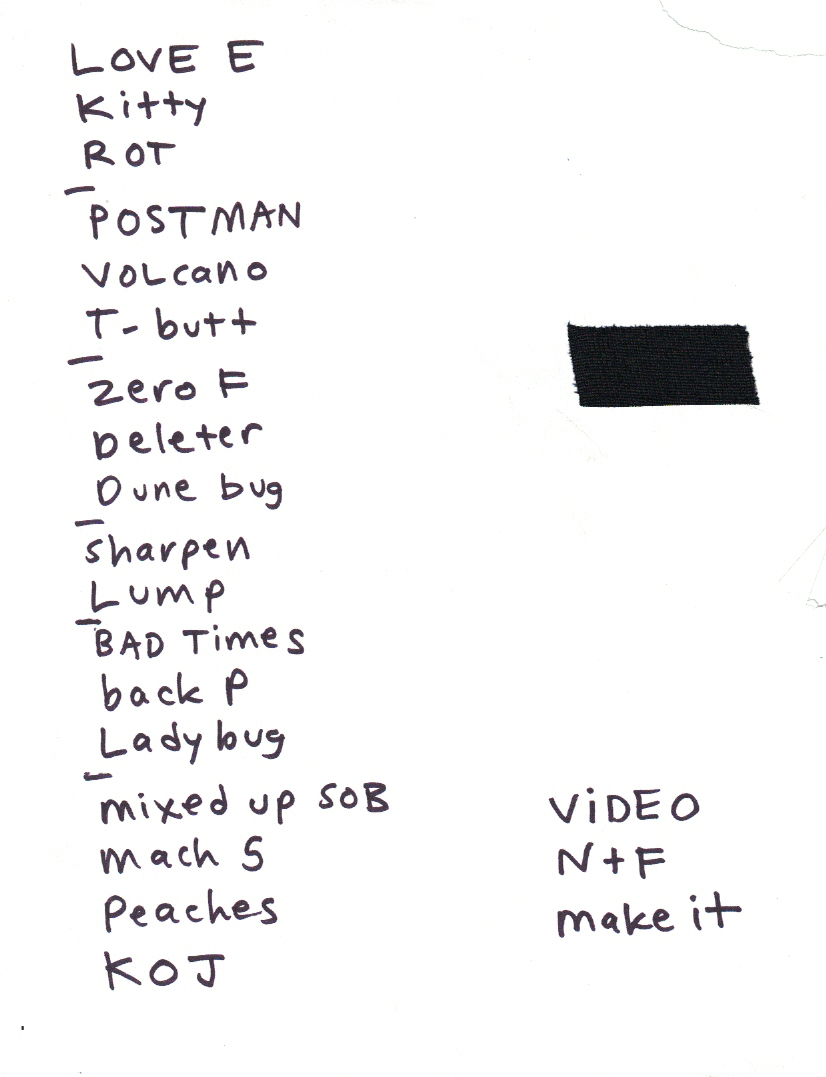 LOVE E
Kitty
ROT
POSTMAN
VOLcano
T-butt
Zero F
Deleter
Dune bug
sharpen
Lump
BAD Times
back P
Ladybug
mixed up SOB
mach 5
Peaches
KOJ
ViDEO
N+F
make it